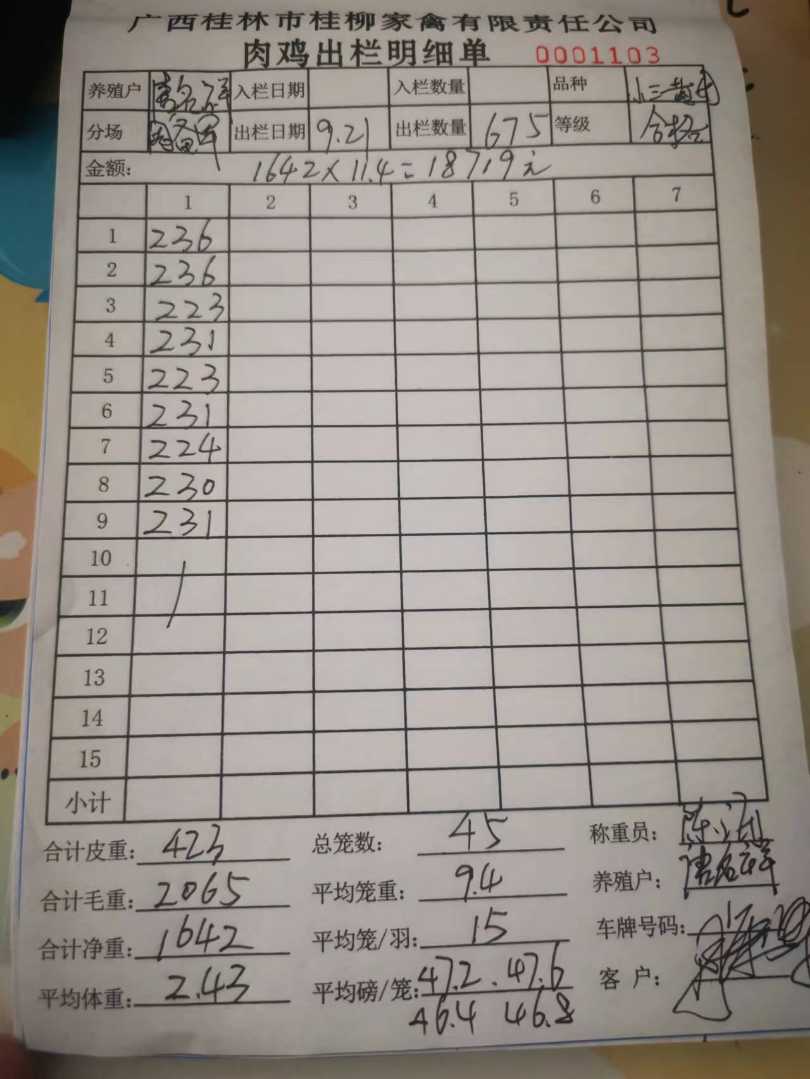 广西桂林市桂柳家禽有限责任公司
肉鸡出栏明细单 0001103
养殖户 入栏日期 入栏数量 品种
分场 出栏日期 9.21 出栏数量 675 等级 合格
金额: 1642×11.4=18719元
1 2 3 4 5 6 7
1 236
2 236
3 223
4 231
5 223
6 231
7 224
8 230
9 231
10
11
12
13
14
15
小计
合计皮重: 423 总笼数: 45 称重员:
合计毛重: 2065 平均笼重: 9.4 养殖户:
合计净重: 1642 平均笼/羽: 15 车牌号码:
平均体重: 2.43 平均磅/笼: 47.2 . 47.6 客 户:
46.4 46.8